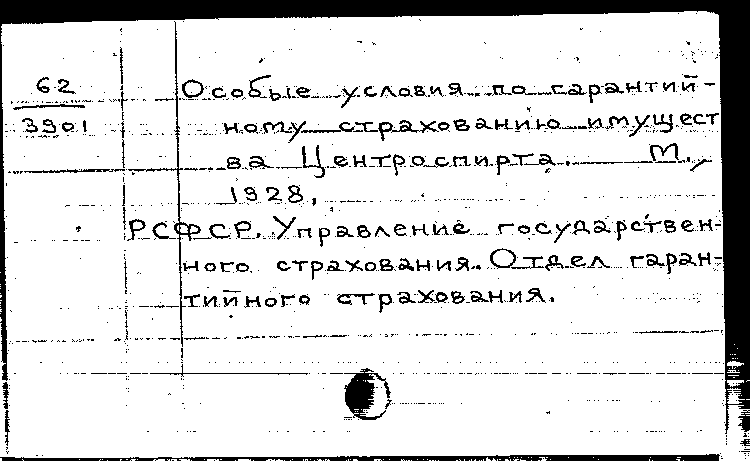 62
3901
Особые условия по гарантий-
ному страхованию имущест
ва Центроспирта. М.,
1928.
РСФСР. Управление государствен-
ного страхования. Отдел гаран-
тийного страхования.